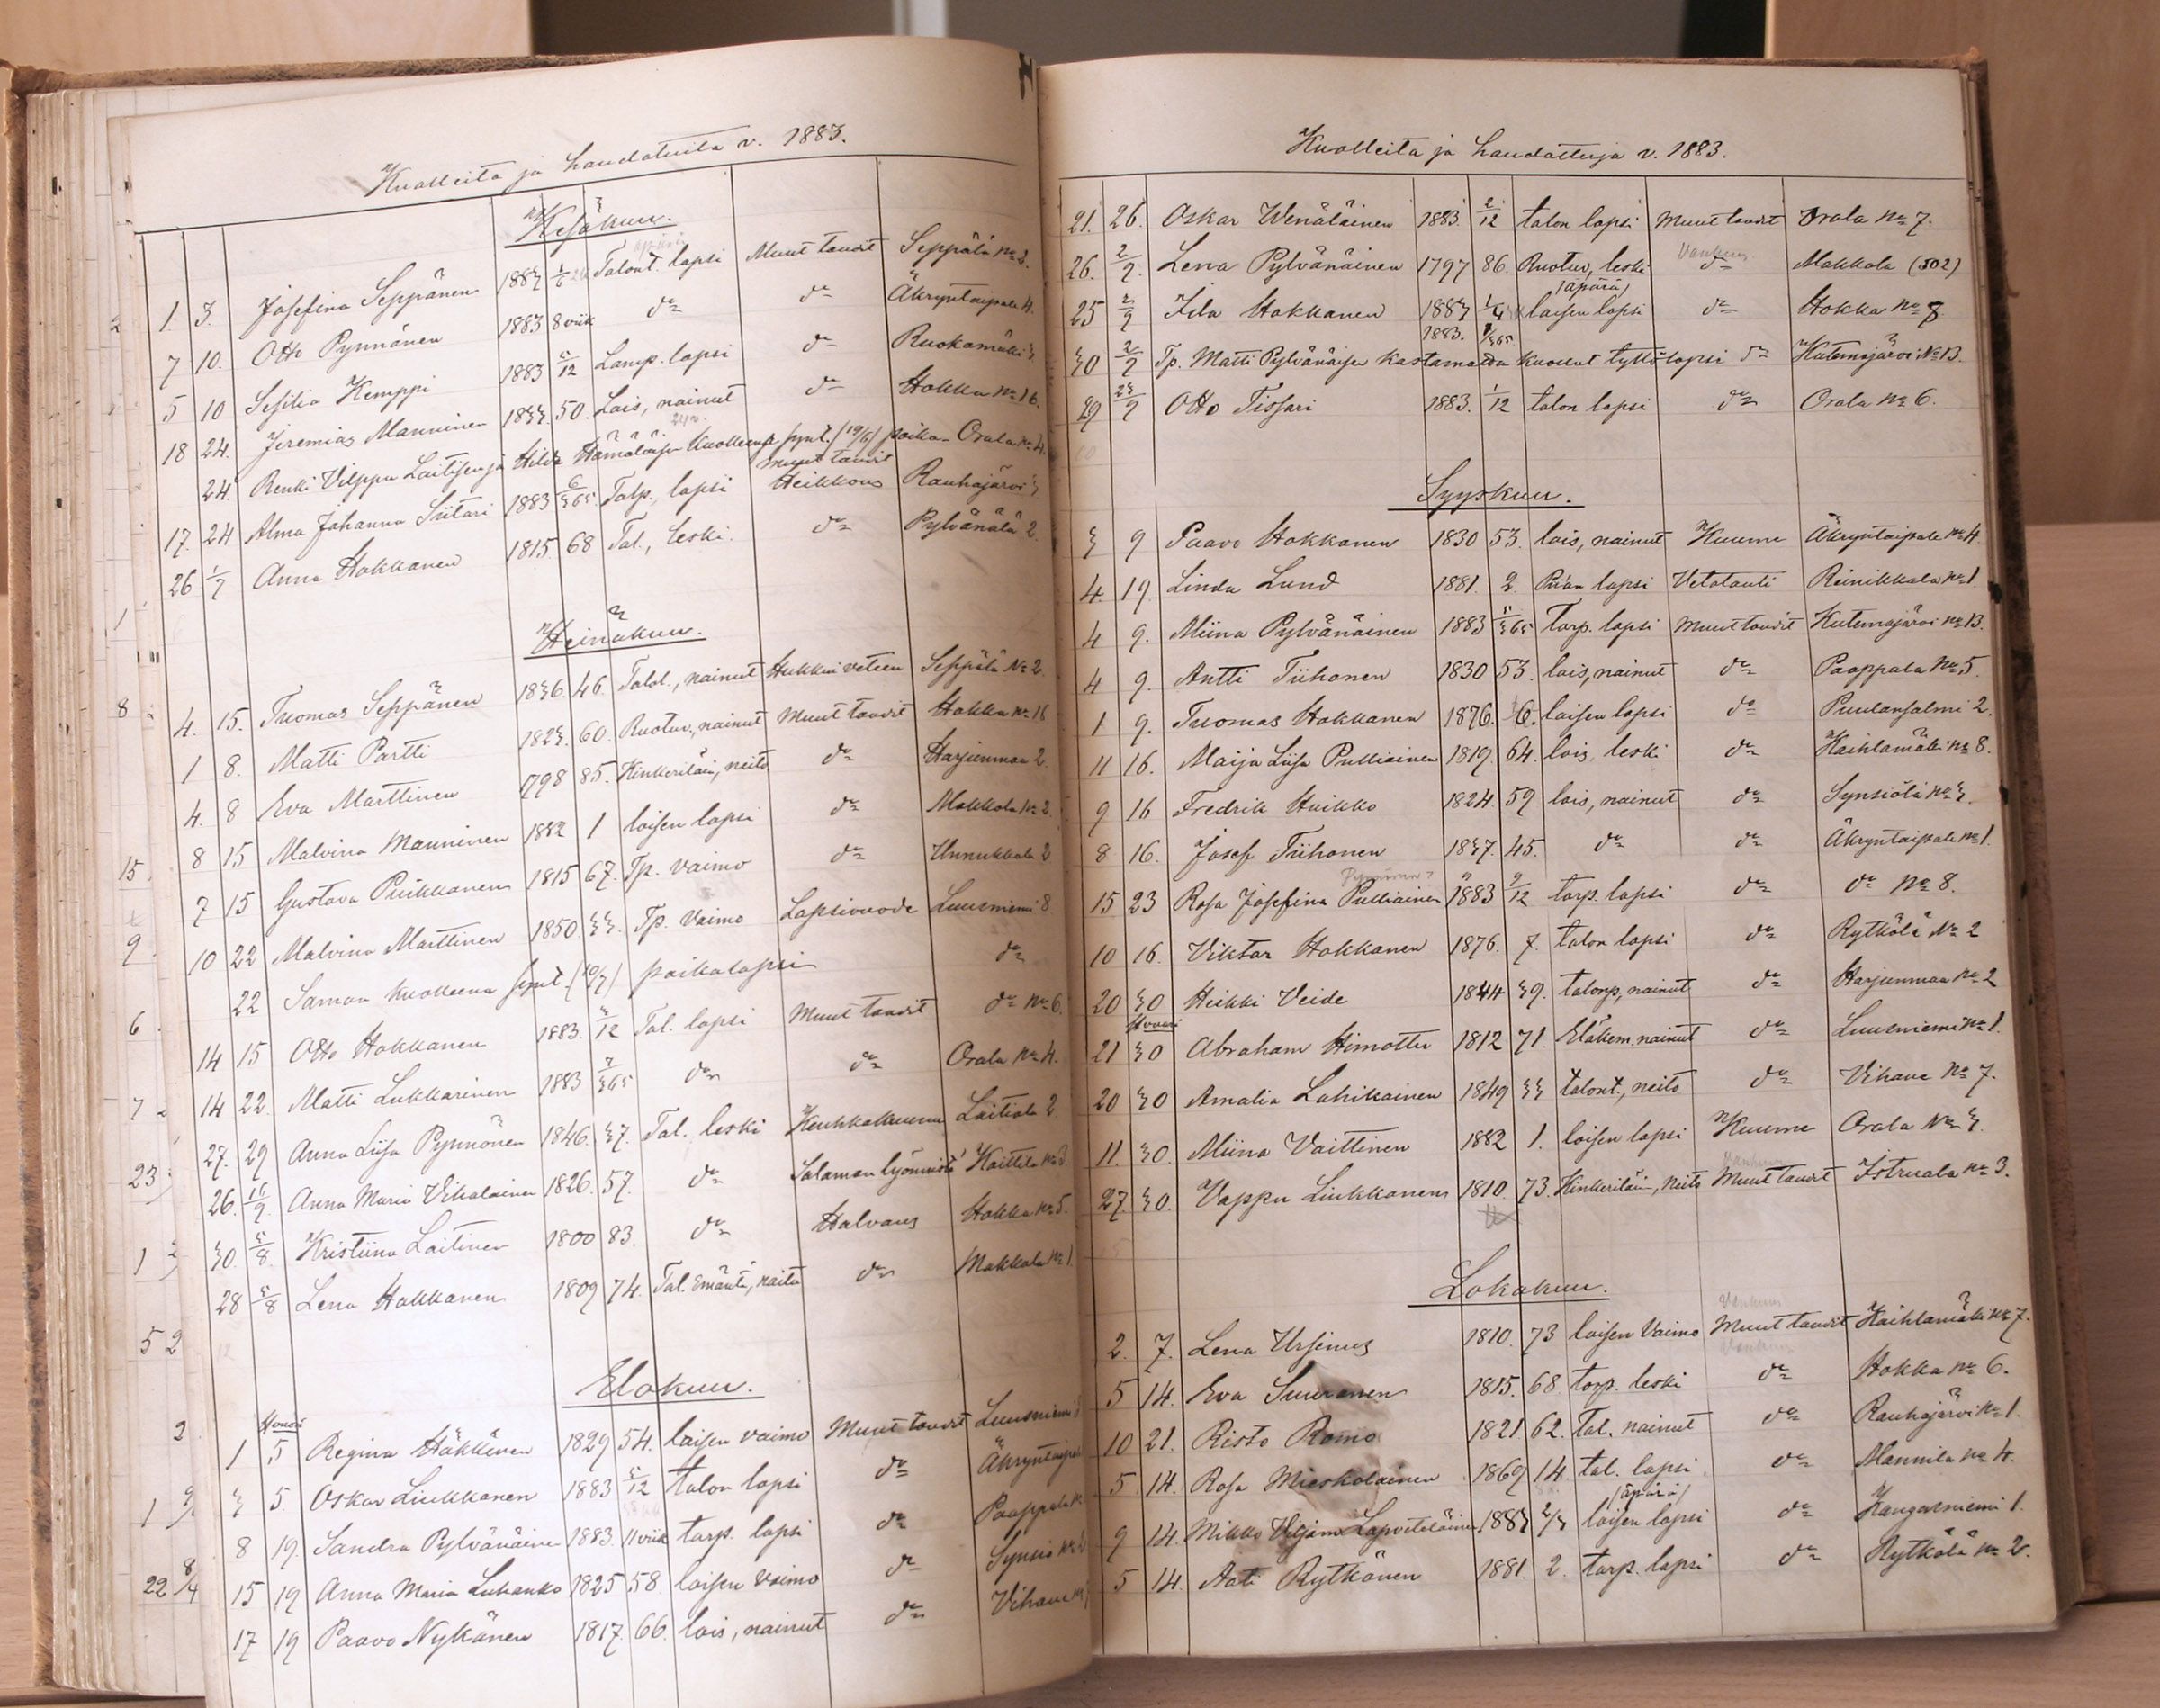 Kuolleita ja haudatuita v. 1883.
Kesäkuu.
1. 3. Josefina Seppänen 1883 1/6 Talont. lapsi Muut taudit Seppälä No 2.
7 10. Otto Pynnönen 1883 8 viik do do Äkryntaipale 4.
5 10 Sesilia Kemppi 1883 5/12 Lamp. lapsi do Ruokomäki 3
18 24. Jeremias Manninen 1833. 50. Lois, nainut do Hokka No 16.
24. Renki Vilppu Laitisen ja Hilda Hämäläisen kuolleena synt. (19/6) poika - Orala No 4.
17. 24 Alma Johanna Siitari 1883 6/365 Talp. lapsi Muut taudit Heikkous Rauhajärvi 3
26 1/7 Anna Hokkanen 1815 68 Tal., leski. do Pylvänälä 2.
Heinäkuu.
4. 15. Tuomas Seppänen 1836. 46. Talol., nainut Hukkui veteen Seppälä No 2.
1 8. Matti Partti 1823. 60. Ruotuv., nainut Muut taudit Hokka No 16
4. 8 Eva Marttinen 1798 85. Kinkeriläin., neito do Harjunmaa 2.
8 15 Malvina Manninen 1882 1 loisen lapsi do Makkola No 2
7 15 Gustava Puikkonen 1815 67. Tp. vaimo do Unnukkala 2
10 22 Malvina Marttinen 1850. 33. Tp. vaimo Lapsivuode Luusniemi 8
22 Saman kuolleena synt. (10/7) poikalapsi do
14 15 Otto Hokkanen 1883. 3/12 Tal. lapsi Muut taudit do No 6.
14 22. Matti Lukkarinen 1883 7/365 do do Orala No 4.
27. 29 Anna Liisa Pynnönen 1846. 37. Tal. leski Keuhkokuume Laitiala 2
26. 16/9. Anna Maria Vihalainen 1826. 57. do Salaman lyömistä Koittila No 3
30. 5/8. Kristiina Laitinen 1800 83. do Halvaus Hokka No 5.
28 5/8 Lena Hokkanen 1809 74. Tal. Emäntä, naitu do Makkola No 1
Elokuu.
1 5 Regina Häkkänen 1829 54. loisen vaimo Muut taudit Luusniemi
3 5. Oskar Liukkonen 1883 5/12 talon lapsi do
8 19. Sandra Pylvänäinen 1883. 11 viik torp. lapsi do
15 19 Anna Maria Luhanko 1825 58. loisen vaimo do
17 19 Paavo Nykänen 1817. 66. lois, nainut do
Kuolleita ja haudattuja v. 1883.
21. 26. Oskar Wenäläinen 1883. 2/12 talon lapsi Muut taudit Orala No 7.
26. 2/9. Lena Pylvänäinen 1797 86. Ruotuv, leski Vanhuus do Makkola (502)
25 2/9 Ida Hokkanen 1883 1/4 (äpärä) loisen lapsi do Hokka No 8.
30 2/9 Tp. Matti Pylvänäisen kastamatta kuollut tyttölapsi 1883. 1/365 do Kutemajärvi No 13.
29 23/9 Otto Tissari 1883. 1/12 talon lapsi do Orala No 6.
Syyskuu.
3 9 Paavo Hokkanen 1830 53. lois, nainut Kuume Äkryntaipale No 4.
4. 19. Linda Lund 1881. 2. Piian lapsi Vetotauti Reinikkala No 1
4 9. Miina Pylvänäinen 1883 5/365 Torp. lapsi Muut taudit Kutemajärvi No 13.
4 9. Antti Tiihonen 1830 53. lois, nainut do Paappala No 5.
1 9. Tuomas Hokkanen 1876. 6. loisen lapsi do Puulansalmi 2.
11 16. Maija Liisa Pulliainen 1819. 64. lois leski do Kaihlamäki No 8.
9 16 Fredrik Huikko 1824. 59 lois, nainut do Synsiölä No 3.
8 16. Josef Tiihonen 1837. 45. do do Äkryntaipale No 1.
15 23 Rosa Josefina Pulliainen 1883 9/12 torp. lapsi do do No 8.
10 16. Viktor Hokkanen 1876. 7. talon lapsi do Rytkölä No 2
20 30 Heikki Veide 1844 39. talonp, nainut do Harjunmaa No 2
21 30 Abraham Himottu 1812 71. Eläkem. nainut do Luusniemi No 1.
20 30 Amalia Lahikainen 1849 33 talont., neito do Vihava No 7.
11. 30. Miina Vaittinen 1882 1. loisen lapsi Kuume Orala No 3.
27. 30. Vappu Liukkonen 1810. 73. Kinkeriläin, neito Muut taudit Istruala No 3.
Lokakuu.
2. 7. Lena Ursinus 1810. 73 loisen vaimo Muut taudit Kaihlamäki No 7.
5 14. Eva Suuronen 1815. 68 torp. leski do Hokka No 6.
10 21. Risto Romo 1821 62. Tal. nainut do Rauhajärvi No 1.
5 14. Rosa Mieskolainen 1869 14. tal. lapsi do Mannila No 4.
9 14. Mikko Viljam Lapveteläinen 1883 2/3 (äpärä) loisen lapsi do Kangasniemi 1.
5 14. Aati Rytkönen 1881. 2. torp. lapsi do Rytkölä No 2.